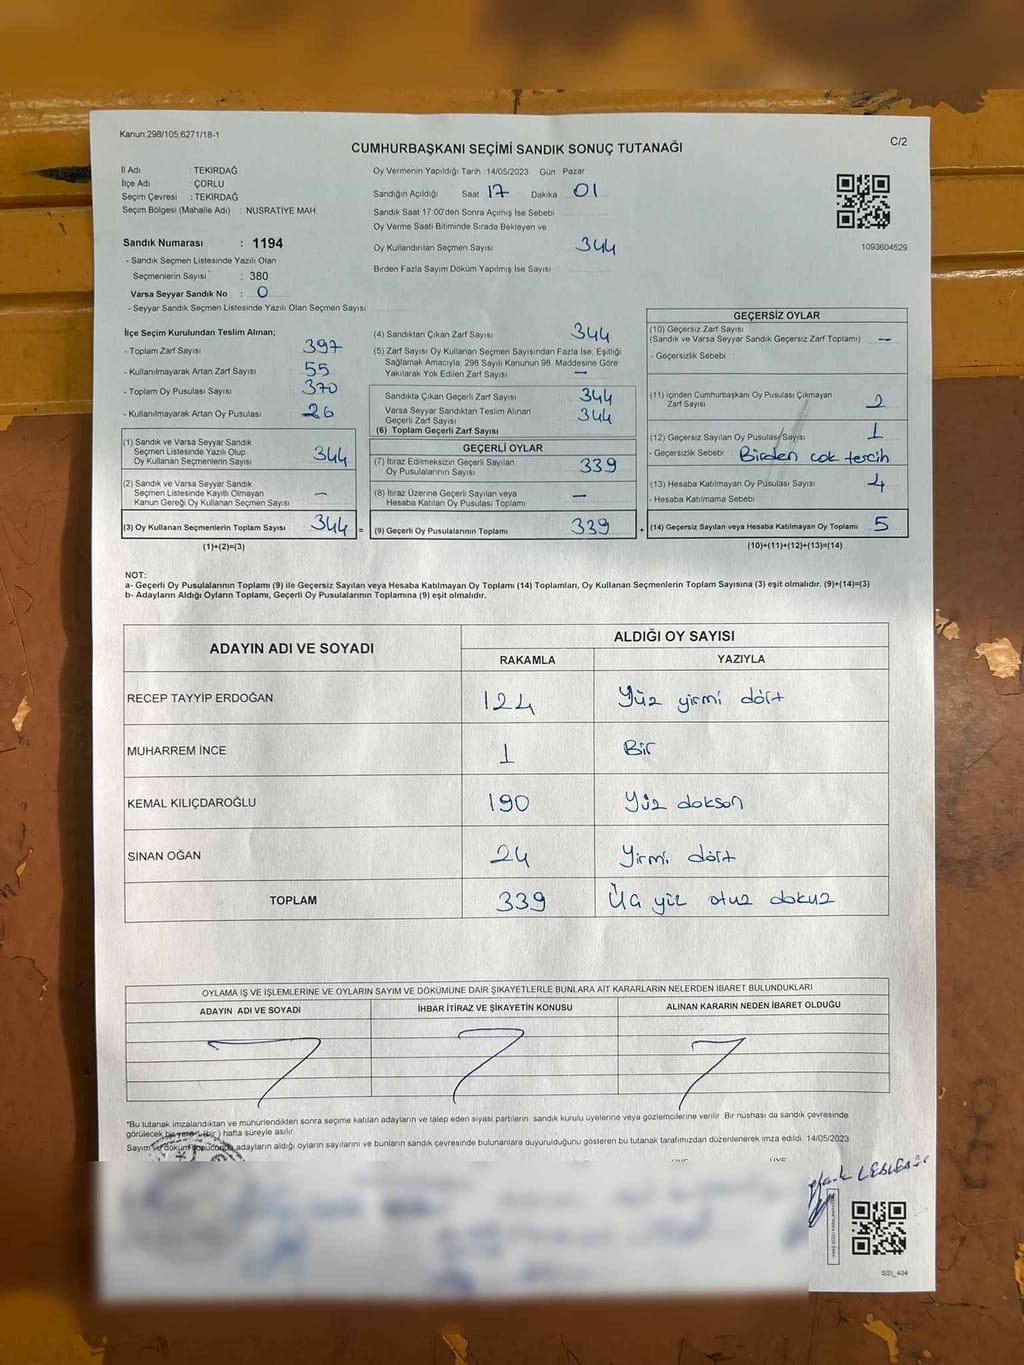 Kanun:298/105;6271/18-1
C/2
CUMHURBAŞKANI SEÇİMİ SANDIK SONUÇ TUTANAĞI
İl Adı : TEKİRDAĞ
İlçe Adı : ÇORLU
Seçim Çevresi : TEKİRDAĞ
Seçim Bölgesi (Mahalle Adı) : NUSRATİYE MAH.
Sandık Numarası : 1194
- Sandık Seçmen Listesinde Yazılı Olan
Seçmenlerin Sayısı : 380
Varsa Seyyar Sandık No : 0
- Seyyar Sandık Seçmen Listesinde Yazılı Olan Seçmen Sayısı
Oy Vermenin Yapıldığı Tarih :14/05/2023 Gün : Pazar
Sandığın Açıldığı Saat 17 Dakika 01
Sandık Saat 17:00'den Sonra Açımış İse Sebebi
Oy Verme Saati Bitiminde Sırada Bekleyen ve
Oy Kullandırılan Seçmen Sayısı 344
Birden Fazla Sayım Döküm Yapılmış İse Sayısı
1093604529
İlçe Seçim Kurulundan Teslim Alınan;
- Toplam Zarf Sayısı 397
- Kullanılmayarak Artan Zarf Sayısı 55
- Toplam Oy Pusulası Sayısı 370
- Kullanılmayarak Artan Oy Pusulası 26
(1) Sandık ve Varsa Seyyar Sandık
Seçmen Listesinde Yazılı Olup
Oy Kullanan Seçmenlerin Sayısı 344
(2) Sandık ve Varsa Seyyar Sandık
Seçmen Listesinde Kayıtlı Olmayan
Kanun Gereği Oy Kullanan Seçmen Sayısı –
(3) Oy Kullanan Seçmenlerin Toplam Sayısı 344
(1)+(2)=(3)
(4) Sandıktan Çıkan Zarf Sayısı 344
(5) Zarf Sayısı Oy Kullanan Seçmen Sayısından Fazla İse, Eşitliği
Sağlamak Amacıyla; 298 Sayılı Kanunun 98. Maddesine Göre
Yakılarak Yok Edilen Zarf Sayısı –
Sandıkta Çıkan Geçerli Zarf Sayısı 344
Varsa Seyyar Sandıktan Teslim Alınan
Geçerli Zarf Sayısı 344
(6) Toplam Geçerli Zarf Sayısı
GEÇERLİ OYLAR
(7) İtiraz Edilmeksizin Geçerli Sayılan
Oy Pusulalarının Sayısı 339
(8) İtiraz Üzerine Geçerli Sayılan veya
Hesaba Katılan Oy Pusulası Toplamı –
= (9) Geçerli Oy Pusulalarının Toplamı 339
GEÇERSİZ OYLAR
(10) Geçersiz Zarf Sayısı
(Sandık ve Varsa Seyyar Sandık Geçersiz Zarf Toplamı) –
- Geçersizlik Sebebi :
(11) İçinden Cumhurbaşkanı Oy Pusulası Çıkmayan
Zarf Sayısı
(12) Geçersiz Sayılan Oy Pusulası Sayısı 1
- Geçersizlik Sebebi Birden çok tercih
(13) Hesaba Katılmayan Oy Pusulası Sayısı 4
- Hesaba Katılmama Sebebi
+ (14) Geçersiz Sayılan veya Hesaba Katılmayan Oy Toplamı 5
(10)+(11)+(12)+(13)=(14)
NOT:
a- Geçerli Oy Pusulalarının Toplamı (9) ile Geçersiz Sayılan veya Hesaba Katılmayan Oy Toplamı (14) Toplamları, Oy Kullanan Seçmenlerin Toplam Sayısına (3) eşit olmalıdır. (9)+(14)=(3)
b- Adayların Aldığı Oyların Toplamı, Geçerli Oy Pusulalarının Toplamına (9) eşit olmalıdır.
ADAYIN ADI VE SOYADI
ALDIĞI OY SAYISI
RAKAMLA YAZIYLA
RECEP TAYYİP ERDOĞAN 124 Yüz yirmi dört
MUHARREM İNCE 1 Bir
KEMAL KILIÇDAROĞLU 190 Yüz doksan
SİNAN OĞAN 24 Yirmi dört
TOPLAM 339 Üç yüz otuz dokuz
OYLAMA İŞ VE İŞLEMLERİNE VE OYLARIN SAYIM VE DÖKÜMÜNE DAİR ŞİKAYETLERLE BUNLARA AİT KARARLARIN NELERDEN İBARET BULUNDUKLARI
ADAYIN ADI VE SOYADI İHBAR İTİRAZ VE ŞİKAYETİN KONUSU ALINAN KARARIN NEDEN İBARET OLDUĞU
"Bu tutanak imzalandıktan ve mühürlendikten sonra seçime katılan adayların ve talep eden siyasi partilerin sandık kurulu üyelerine veya gözlemcilerine verilir. Bir nüshası da sandık çevresinde
görülecek bir yere 1 (bir) hafta süreyle asılır.
Sayım ve döküm sonucunda adayların aldığı oyların sayılarını ve bunların sandık çevresinde bulunanlara duyurulduğunu gösteren bu tutanak tarafımızdan düzenlenerek imza edildi. 14/05/2023
SSI_404